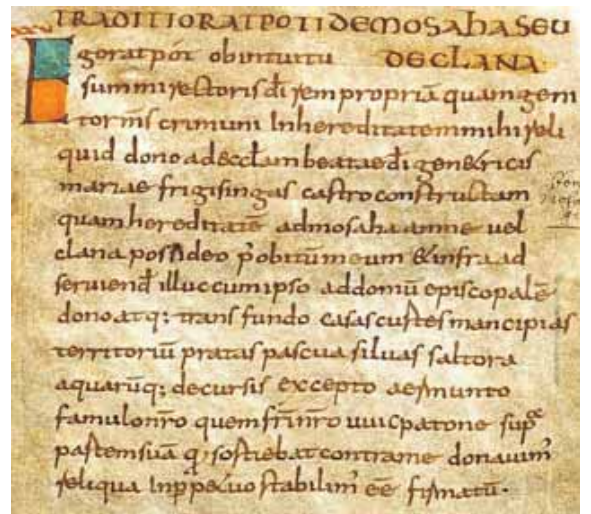 TRADITIO RATPOTI DE MOSAHA SEU
DECLANA
EGo ratpot ob intuitu
summi rectoris di rem propriā quam geni
tor ms crimuni In hereditatem mihi reli
quid dono ad ecclam beatae di genetricis
mariae frigisingas castro constructam
quam hereditatē ad mosaha amne vel
clana possideo p obitum meum & infra ad
serviend illuc cum ipso ad domū episcopalē
dono atq; transfundo casas curtes mancipias
territoriū pratas pascua silvas saltora
aquarūq; decursis excepto
famulo nro quem fr nr uuicpato ne sup
partem suā q; sortiebat contra me donavim
reliqua In ppetuo stabilim eē firmatū.